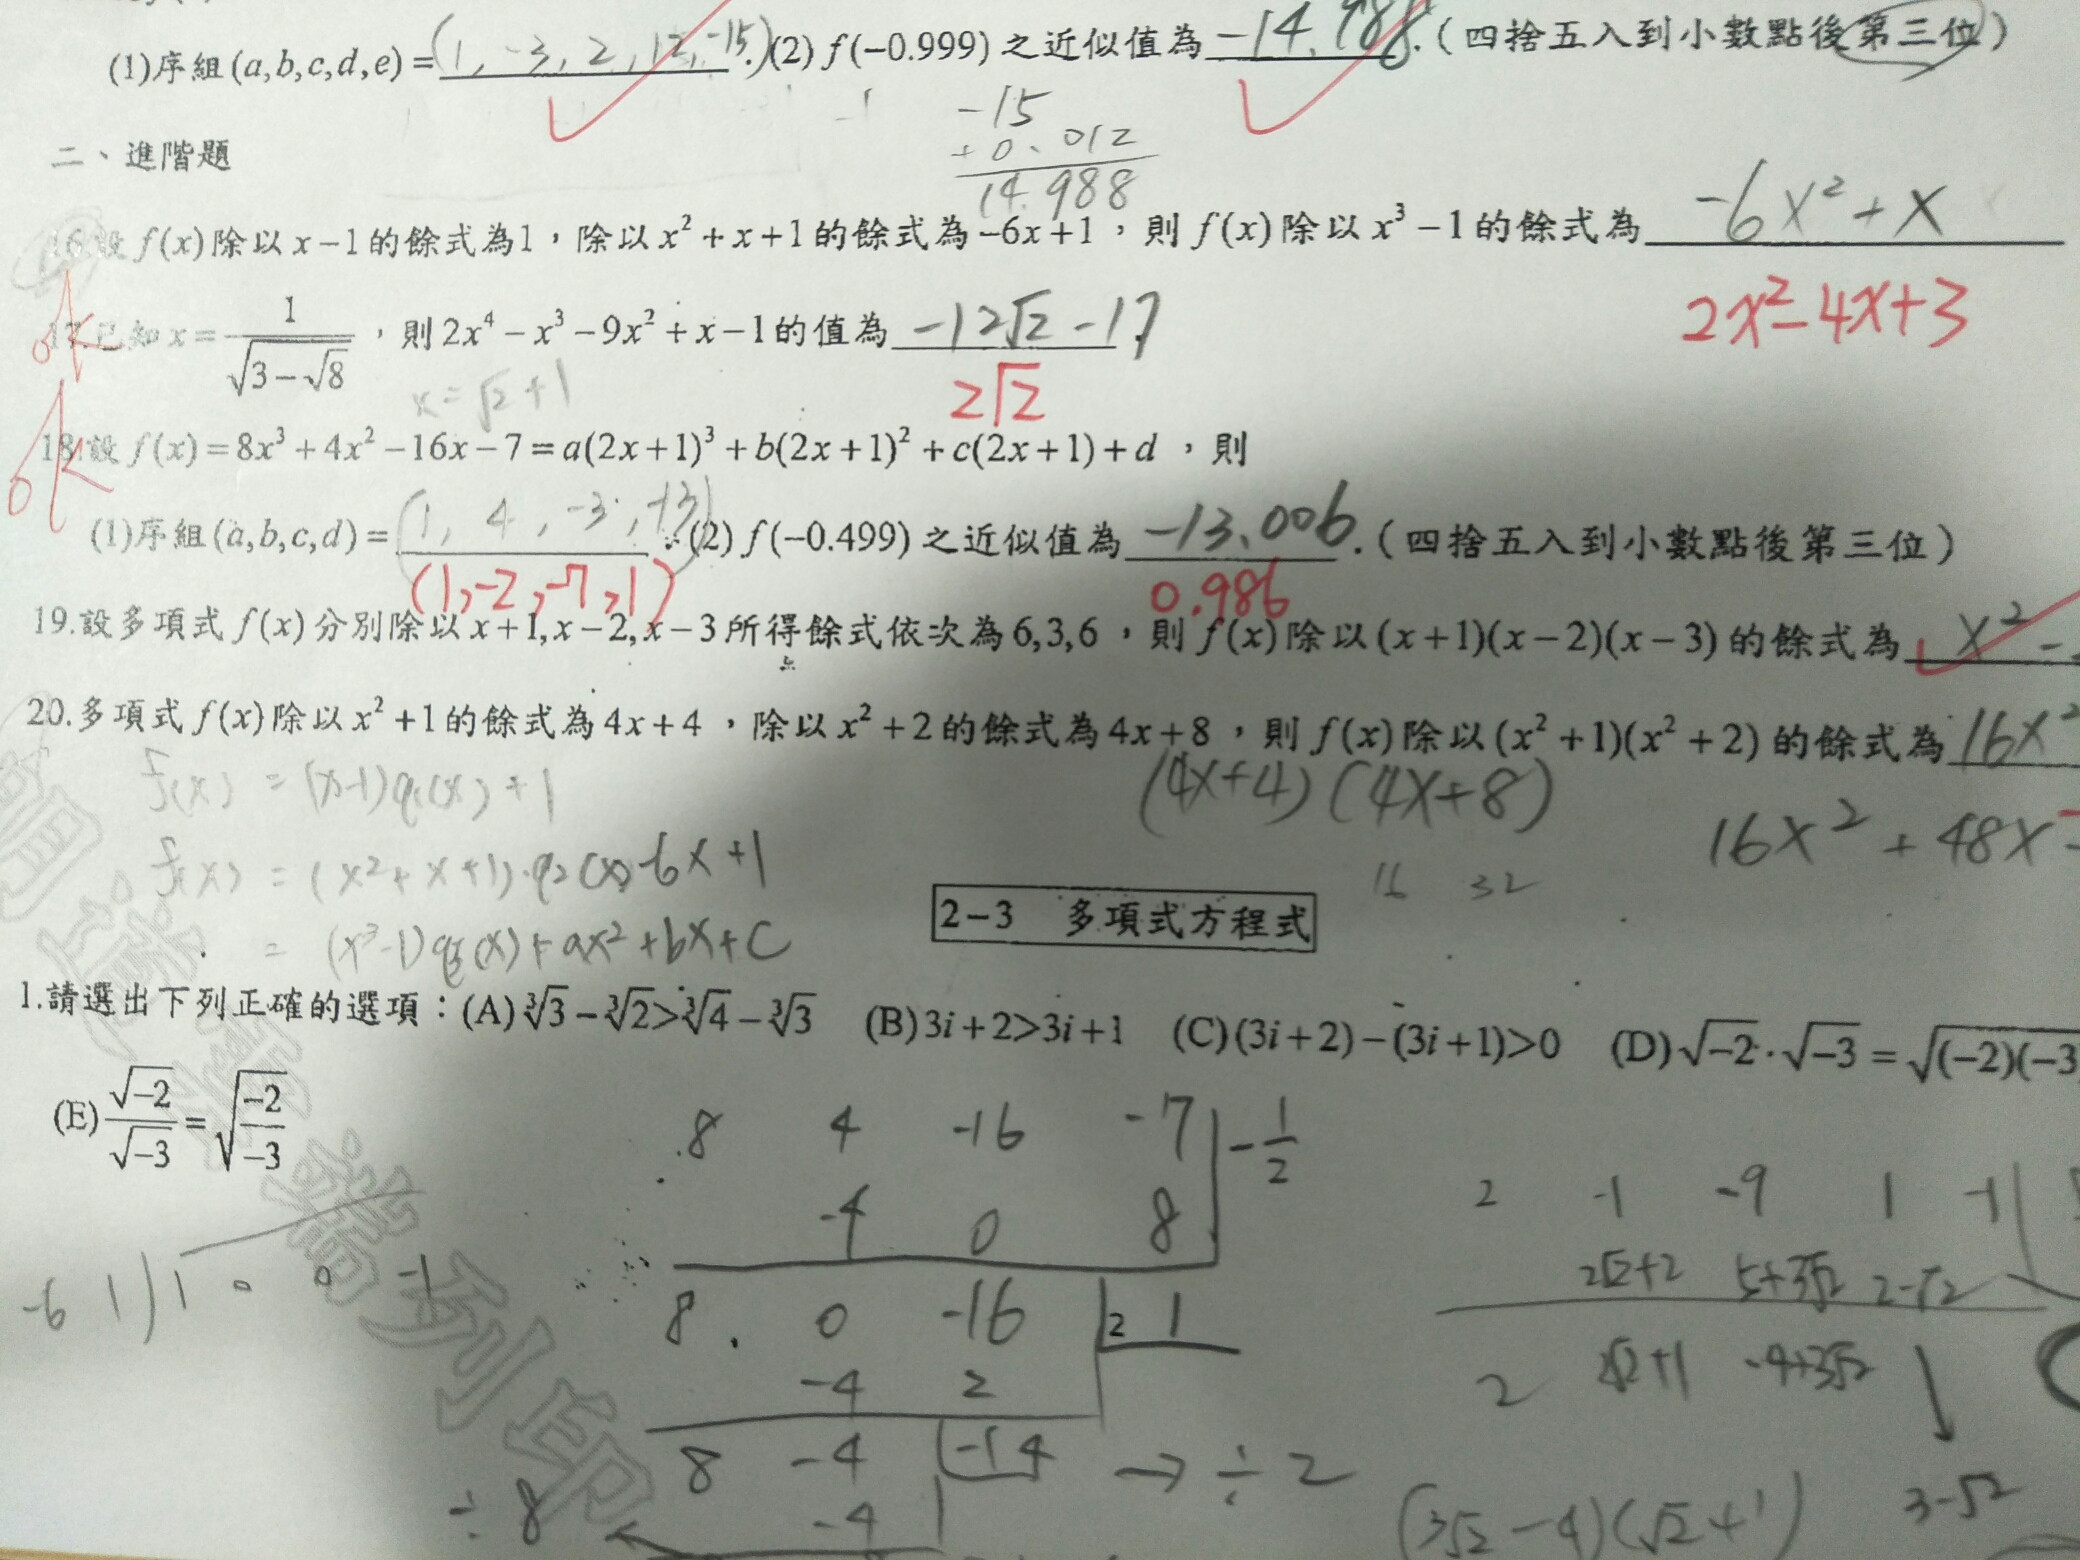 (1)序組(a,b,c,d,e)=(1, -3, 2, 12, -15).(2) f(-0.999) 之近似值為 -14.988.(四捨五入到小數點後第三位)
-15
+0.012
14.988
二、進階題
16.設 f(x) 除以 x-1 的餘式為 1,除以 x²+x+1 的餘式為 -6x+1,則 f(x) 除以 x³-1 的餘式為 -6x²+x
2x²-4x+3
ok
17.已知 x = 1/√(3-√8),則 2x⁴-x³-9x²+x-1 的值為 -12√2-17.
2√2
x=√2+1
ok
18.設 f(x)=8x³+4x²-16x-7=a(2x+1)³+b(2x+1)²+c(2x+1)+d,則
(1)序組(a,b,c,d)=(1, 4, -3, -13).(2) f(-0.499) 之近似值為 -13.006.(四捨五入到小數點後第三位)
(1,-2,-7,1) 0.986
19.設多項式 f(x) 分別除以 x+1,x-2,x-3 所得餘式依次為 6,3,6,則 f(x) 除以 (x+1)(x-2)(x-3) 的餘式為 x²-
20.多項式 f(x) 除以 x²+1 的餘式為 4x+4,除以 x²+2 的餘式為 4x+8,則 f(x) 除以 (x²+1)(x²+2) 的餘式為 16x²
f(x) = (x-1)q₁(x)+1
(4x+4)(4x+8)
16x²+48x
f(x) = (x²+x+1)·q₂(x)-6x+1
16 32
= (x³-1)q₃(x)+ax²+bx+c
2-3 多項式方程式
1.請選出下列正確的選項:(A)∛3-∛2>∛4-∛3 (B)3i+2>3i+1 (C)(3i+2)-(3i+1)>0 (D)√-2·√-3=√(-2)(-3
(E)√-2/√-3=√(-2/-3)
8 4 -16 -7 -1/2
-4 0 8
8 0 -16 1
2
-4 2
8 -4 -14 → ÷2
÷8 -4
-6 1)1 0 0 -1
2 -1 -9 1 -1
2√2+2 5+3√2 2-√2
2 2√2+1 -4+3√2
3-√2
(3√2-4)(√2+1)